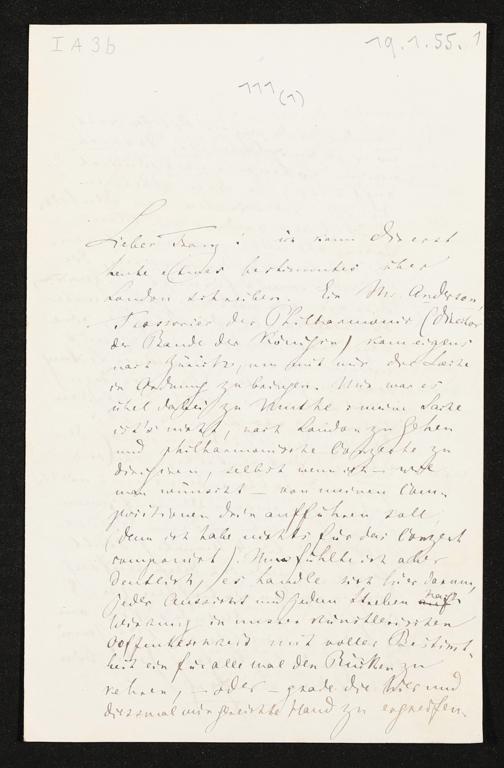 I A 3b
19.1.55. 1
111 (1)
Lieber Franz! ich kann Dir erst
heute etwas bestimmtes über
London schreiben. Ein Mr Anderson,
Treasorier der Philharmonic (Director
der Bande der Königin) kam eigens
nach Zürich, um mit mir die Sache
in Ordnung zu bringen. Mir war es
übel dabei zu Muthe: meine Sache
ist's nicht, nach London zu gehen
und philharmonische Conzerte zu
dirigiren, selbst wenn ich – wie
man wünscht – von meinen Com-
positionen drin aufführen soll,
(denn ich habe nichts für das Conzert
componirt). Nun fühlte ich aber
deutlich, es handle sich hier darum,
jeder Aussicht und jedem Streben nach
Wirkung in unsrer künstlerischen
Oeffentlichkeit mit voller Bestimt-
heit ein für alle mal den Rücken zu
kehren, – oder – grade die hier und
diessmal mir gereichte Hand zu ergreifen.